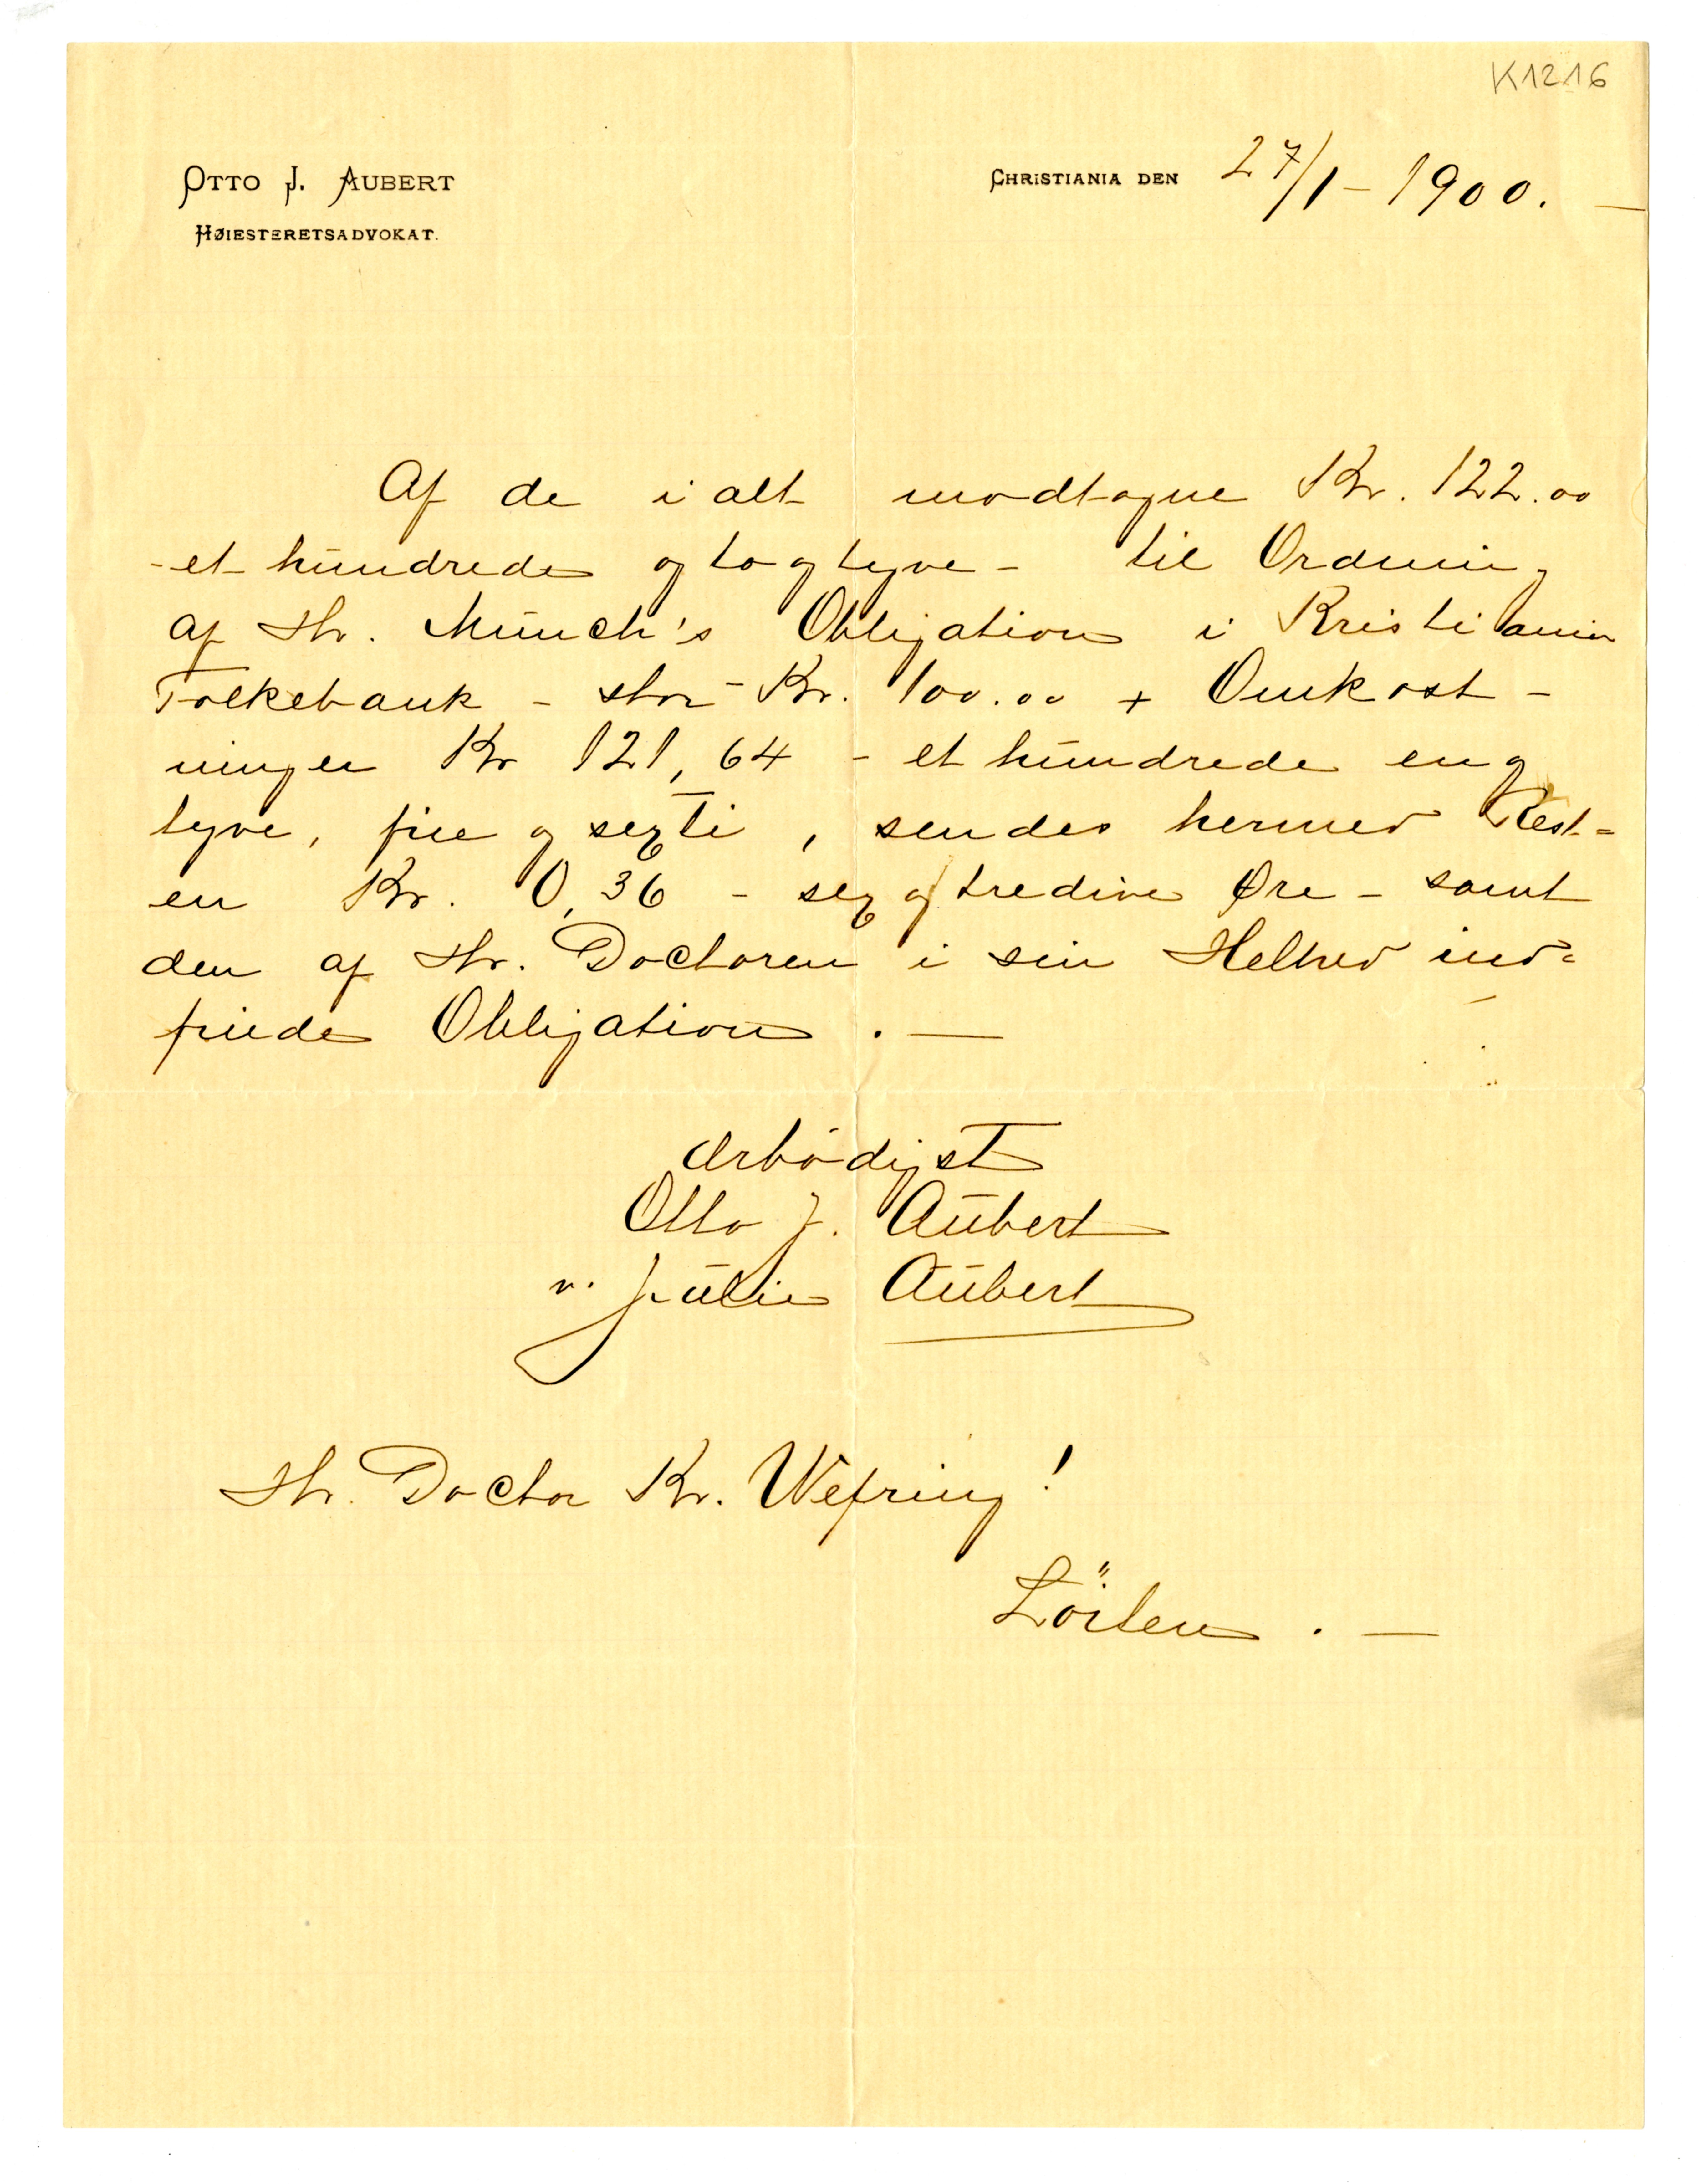 K1216
OTTO J. AUBERT
HØIESTERETSADVOKAT.
CHRISTIANIA DEN 27/1 – 1900. –
Af de i alt modtagne Kr. 122.00
- et hundrede og to og tyve - til Ordning
af Hr. Munch's Obligation i Kristiania
Folkebank - stor - Kr. 100.00 + Omkost-
ninger Kr 121,64 - et hundrede en og
tyve, fire og sexti, sendes hermed Rest=
en Kr. 0,36 - sex og tredive Øre - samt
den af Hr. Doctoren i sin Helhed ind=
friede Obligation. —
Ærbødigst
Otto J. Aubert
v. Julie Aubert
Hr. Doctor Kr. Wefring!
Löiten. —